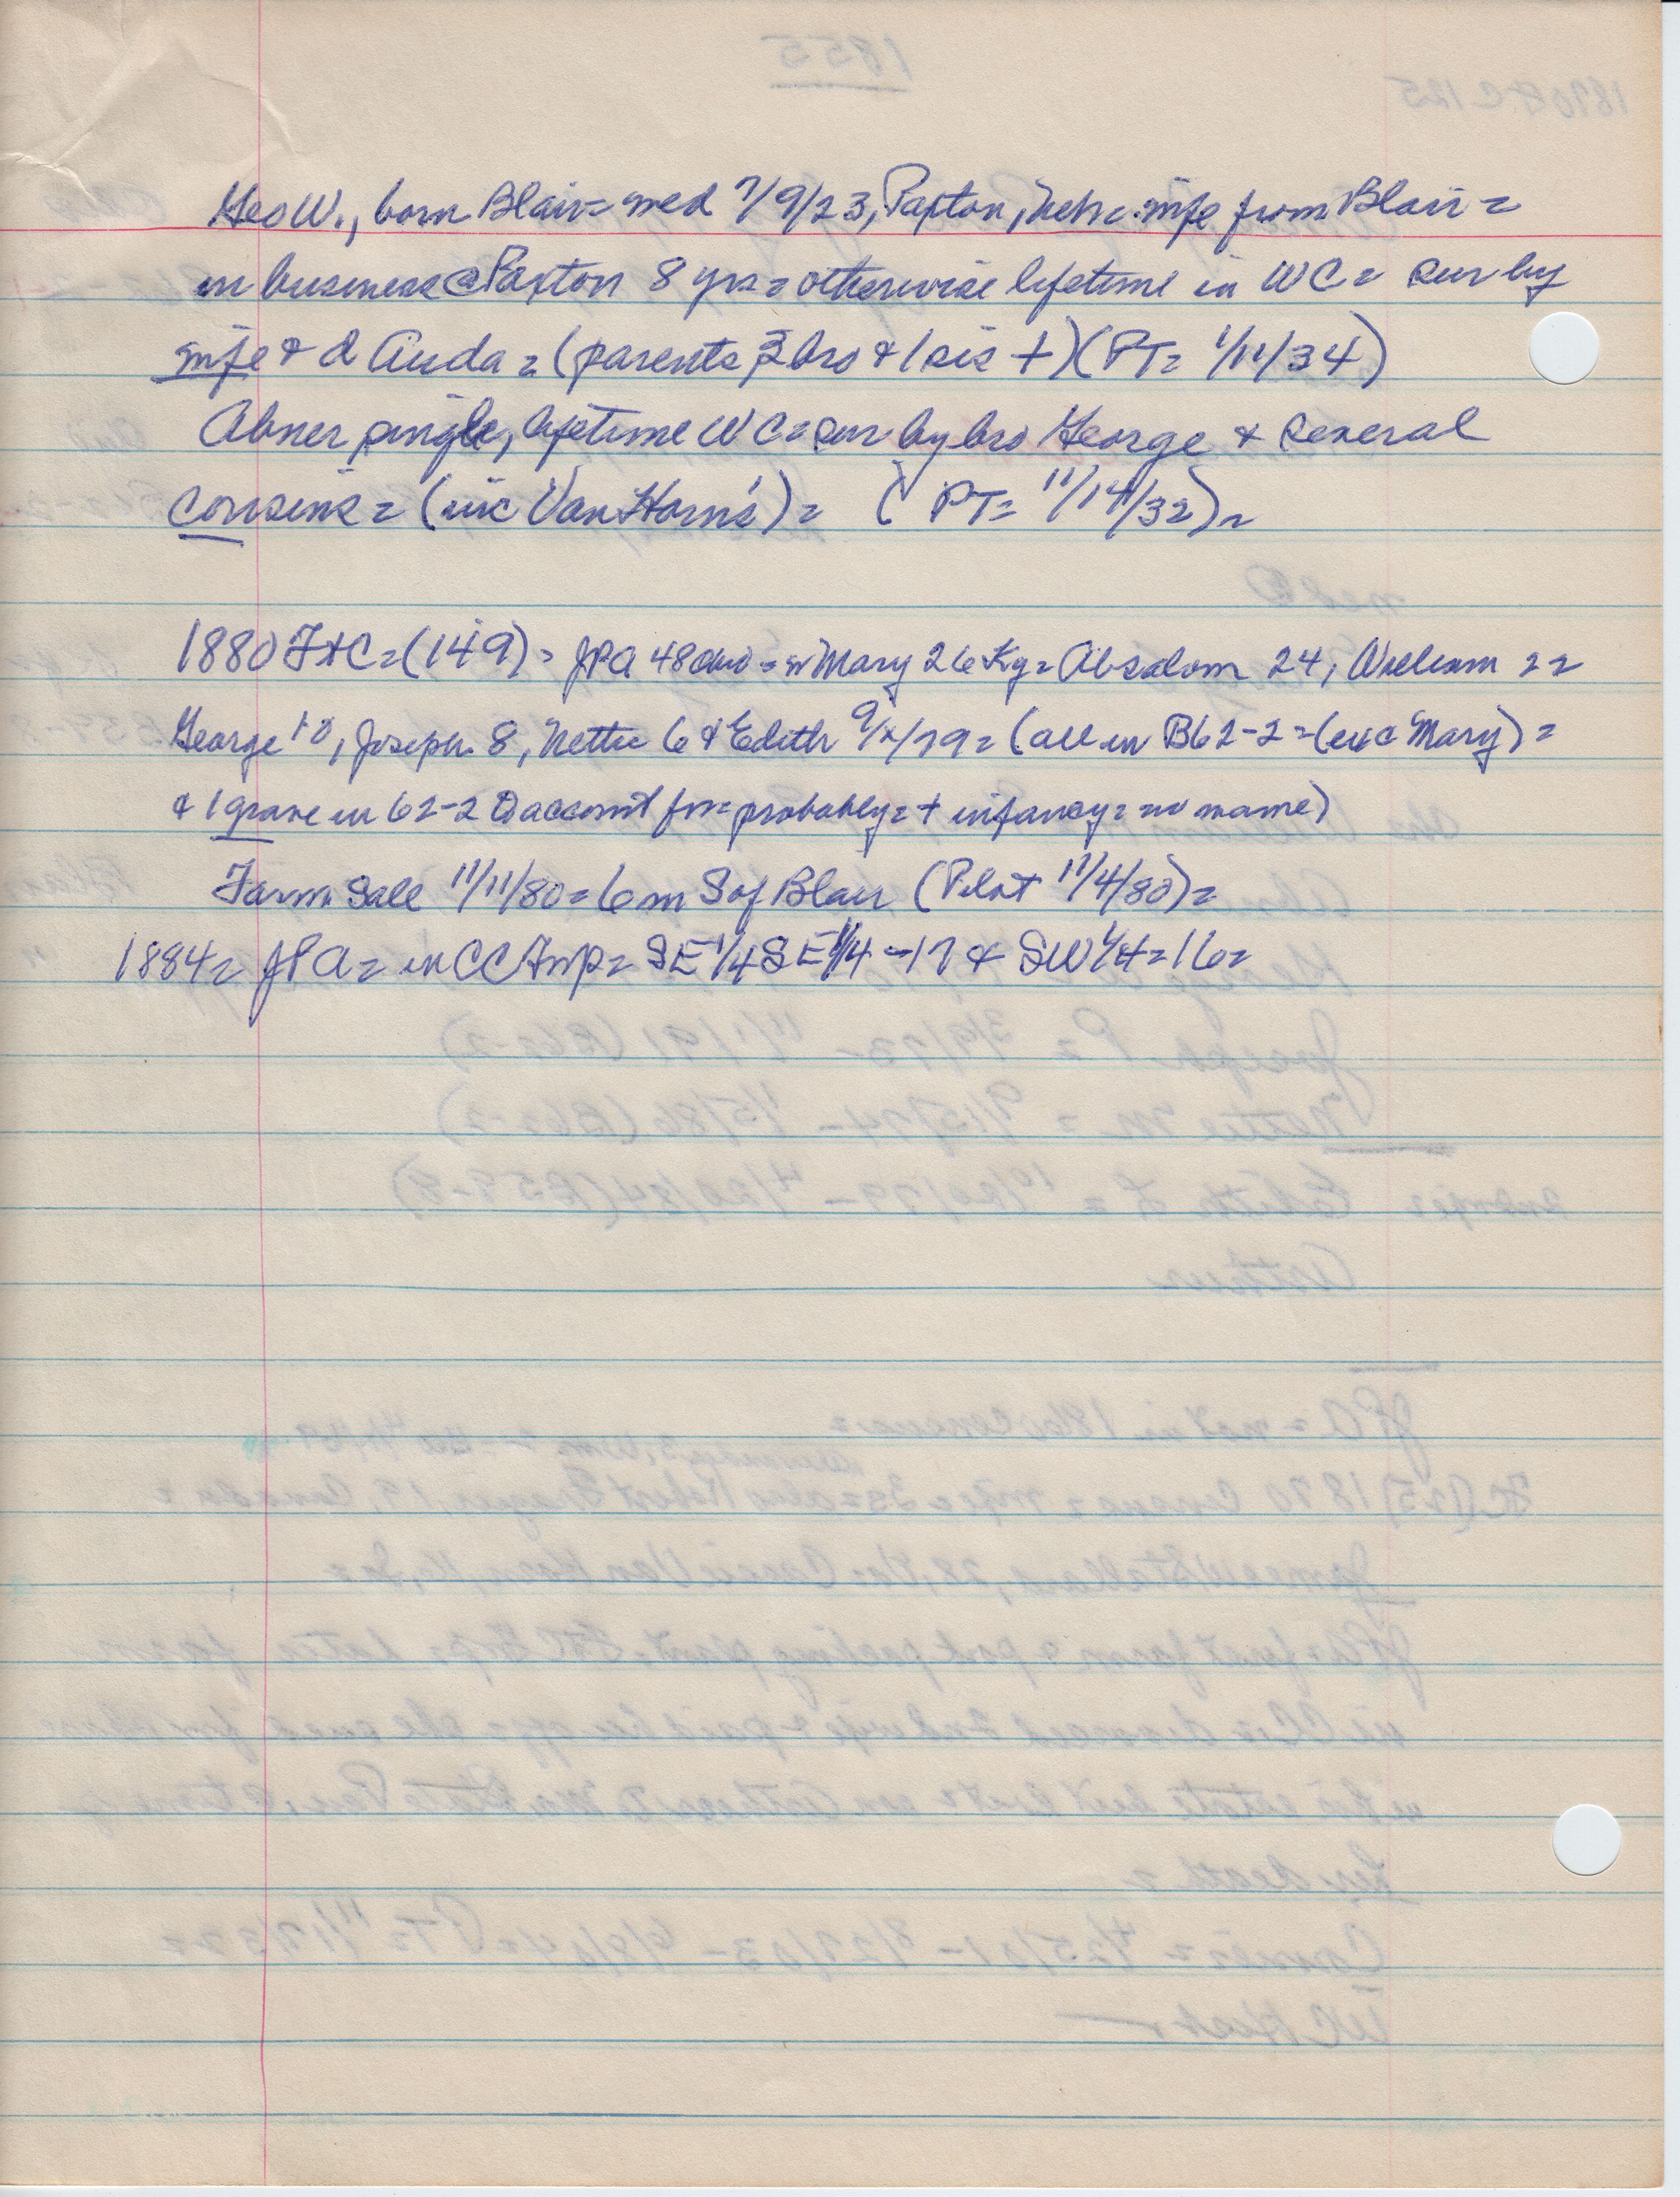 Geo W., born Blair= med 7/9/23, Paxton, Nebr= wife from Blair=
in business @ Paxton 8 yrs= otherwise lifetime in WC= sur by
wife & d Auda= (parents, 3 bro & 1 sis +) (PT= 1/11/34)
Abner single, lifetime WC= sur by bro George & several
cousins= (inc Van Horns')= (PT= 11/14/32)=
1880 FtC= (149)= JPA 48 Ohio= w Mary 26 Ky= Absalom 24, William 22
George 10, Joseph 8, Nettie 6 & Edith 9/x/79= (all in B62-2= (exc Mary)=
& 1 grave in 62-2 account for= probably= + infancy= no name)
Farm Sale 11/11/80= 6 m S of Blair (Pilot 11/4/80)=
1884= JPA= in CC Twp= SE 1/4 SE 1/4 -17 & SW 1/4= 16=